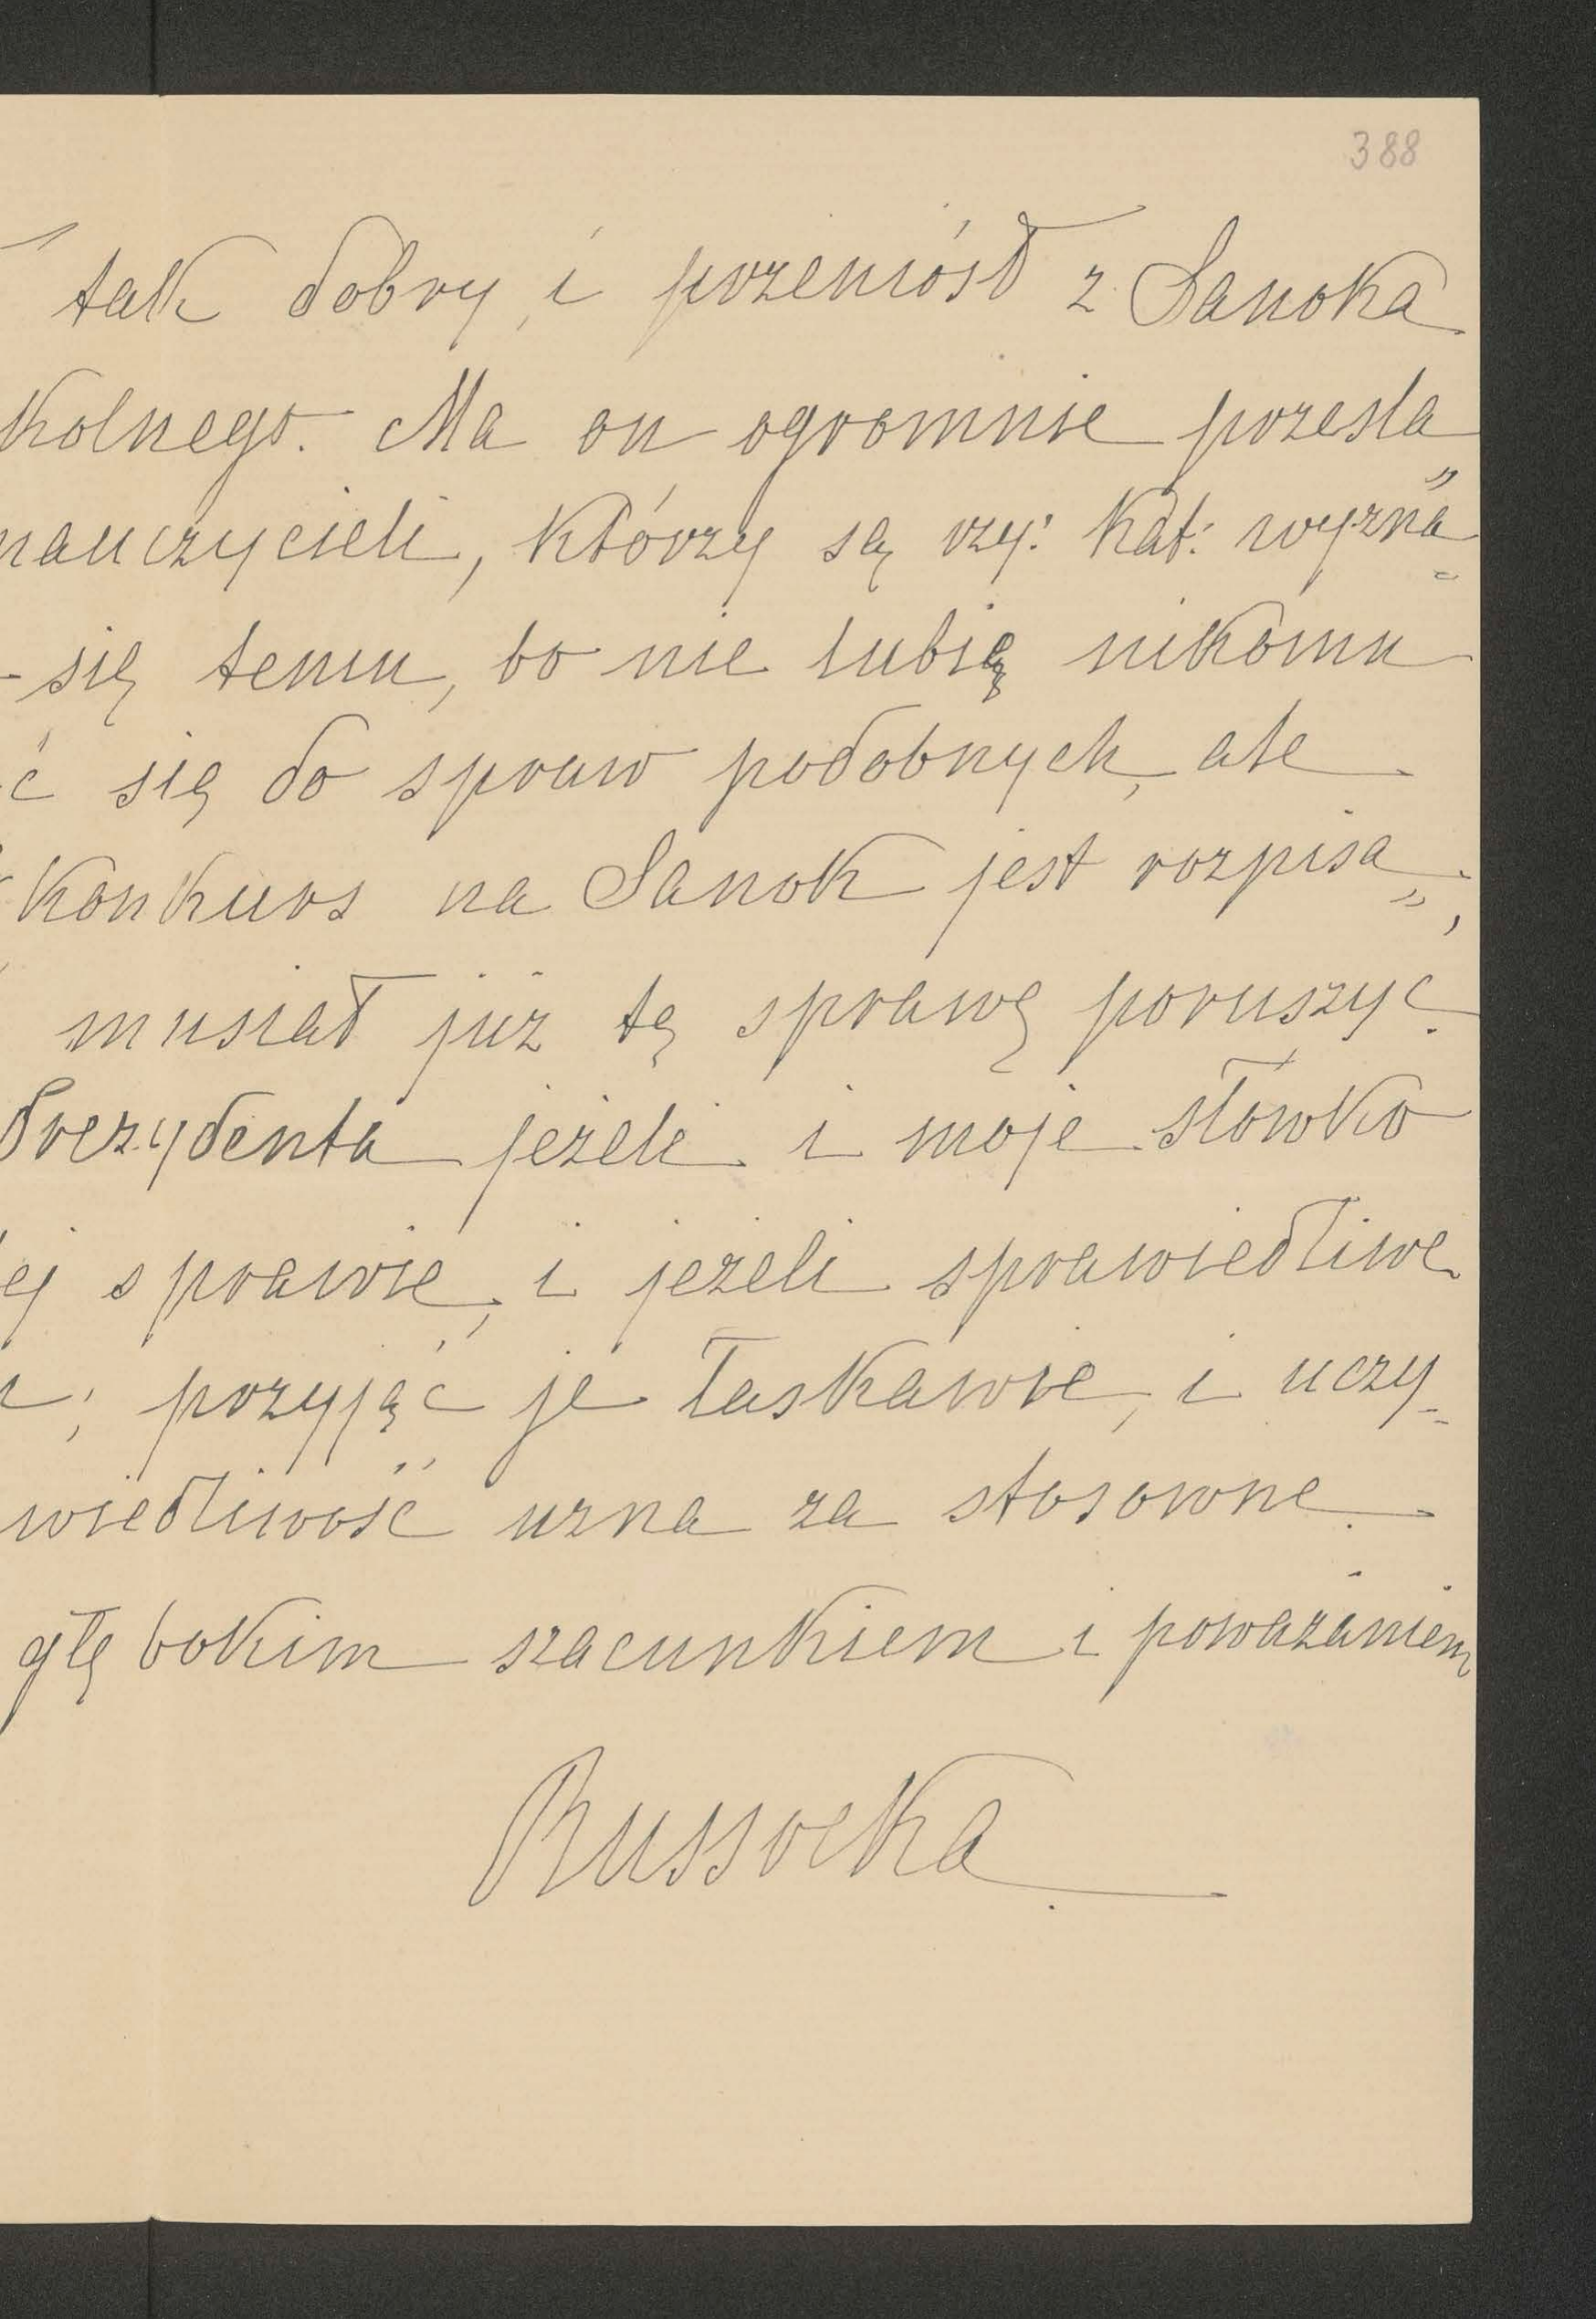 388
tak dobry, i przeniósł z Sanoka
kolnego. Ma on ogromnie prześla„
nauczycieli, którzy są rzy: kat: wyzna=
się temu, bo nie lubię nikomu
ć się do spraw podobnych, ale
konkurs na Sanok jest rozpisa„,
musiał już tę sprawę poruszyć.
Prezydenta jeżeli i moje słówko
ej sprawie, i jeżeli sprawiedliwe
; przyjąć je łaskawie, i uczy=
wiedliwość uzna za stosowne.
głębokim szacunkiem i poważaniem
Russocka